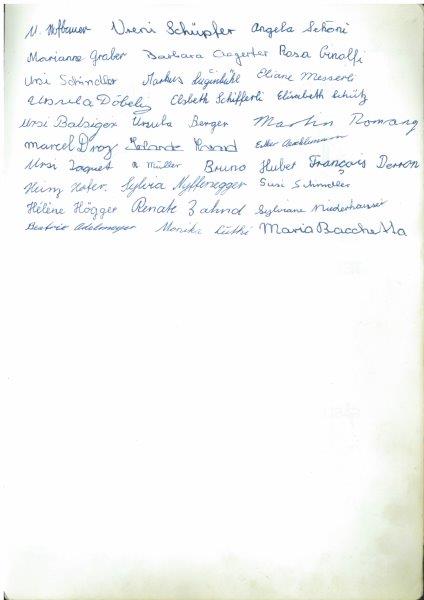 Vreni Schüpfer Angela Schöni
Marianne Graber Barbara Aegerter Rosa Ginolfi
Ursi Schindler Markus Luginbühl Eliane Messerli
Ursula Döbeli Elsbeth Schifferli Elisabeth Schütz
Ursi Balsiger Ursula Berger Martin Romang
marcel Droz
Ursi Jaquet R Müller Bruno Huber François Derron
Sylvia Nyffenegger Susi Schindler
Hélène Högger Renate Zahnd Sylviane Niederhauser
Beatrix Adelmeyer Monika Lüthi Maria Bacchetta